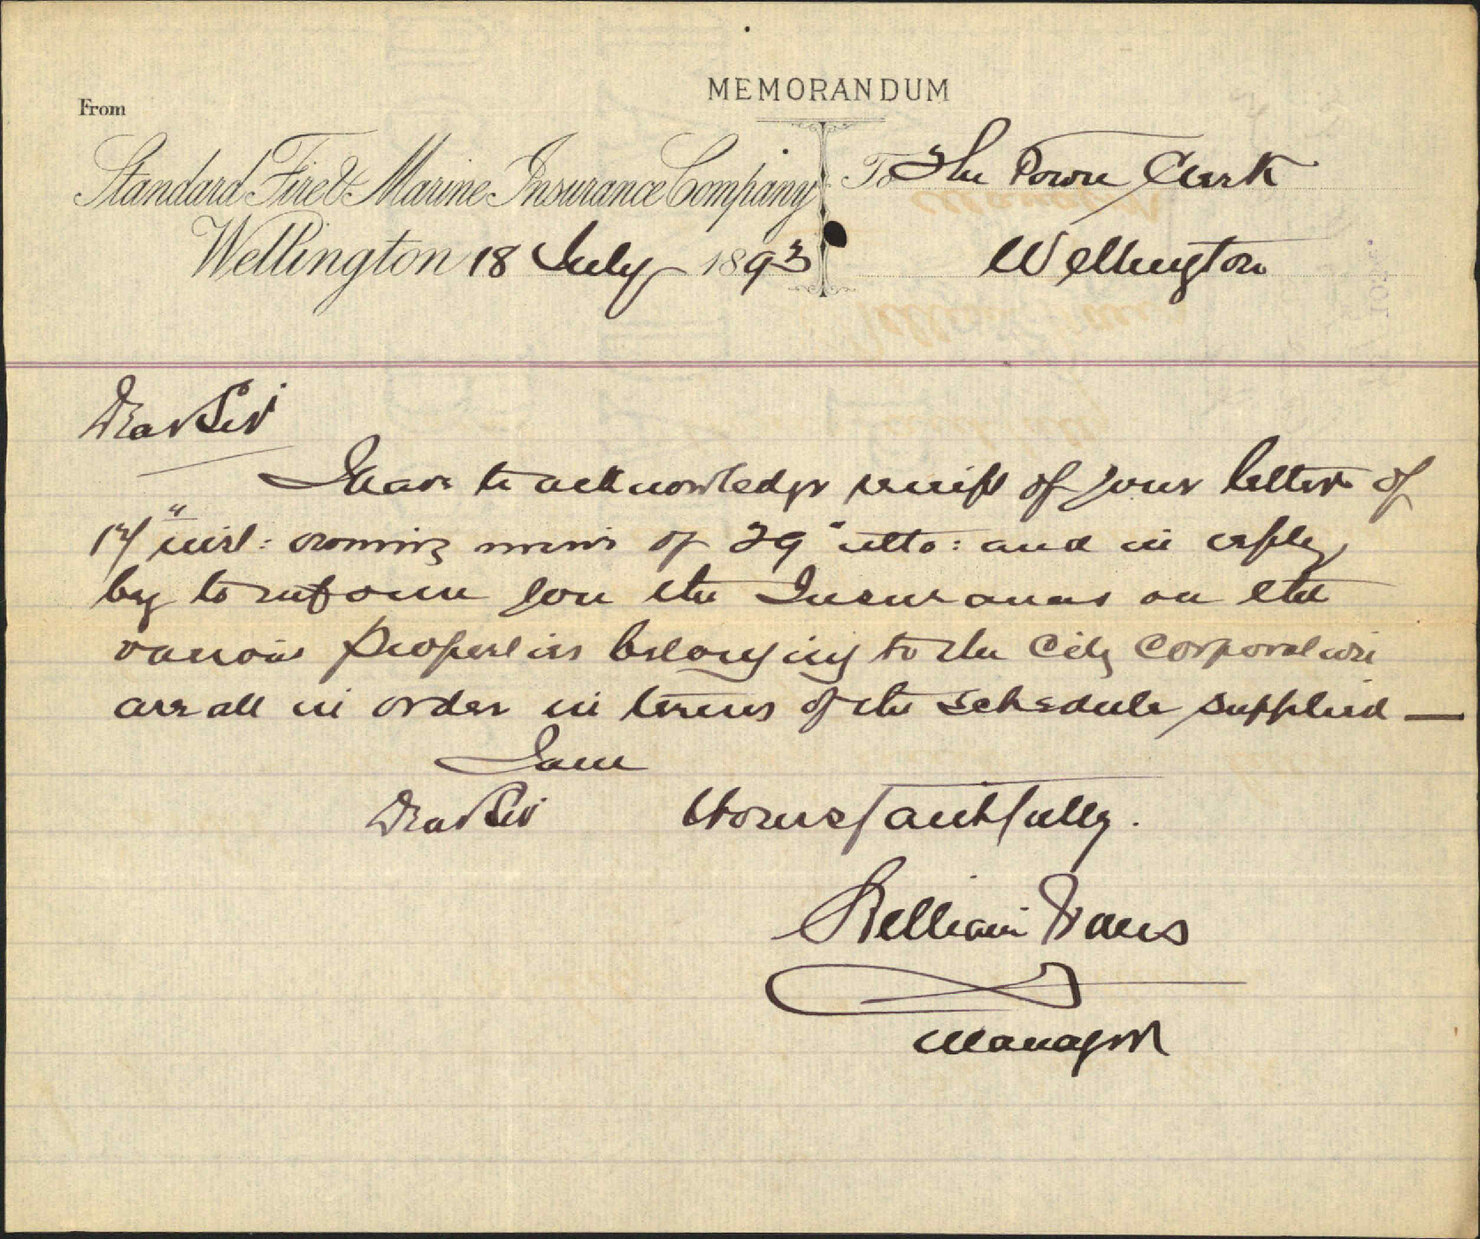 MEMORANDUM
From
Standard Fire & Marine Insurance Company
To The Town Clerk
Wellington 18 July 1893
Wellington
Dear Sir
I have to acknowledge receipt of your letter of
17" inst: owning mine of 29" ulto: and in reply
beg to inform you the Insurances on the
various properties belonging to the City Corporation
are all in order in terms of the schedule supplied —
I am
Dear Sir Yours faithfully.
William Evans
Manager